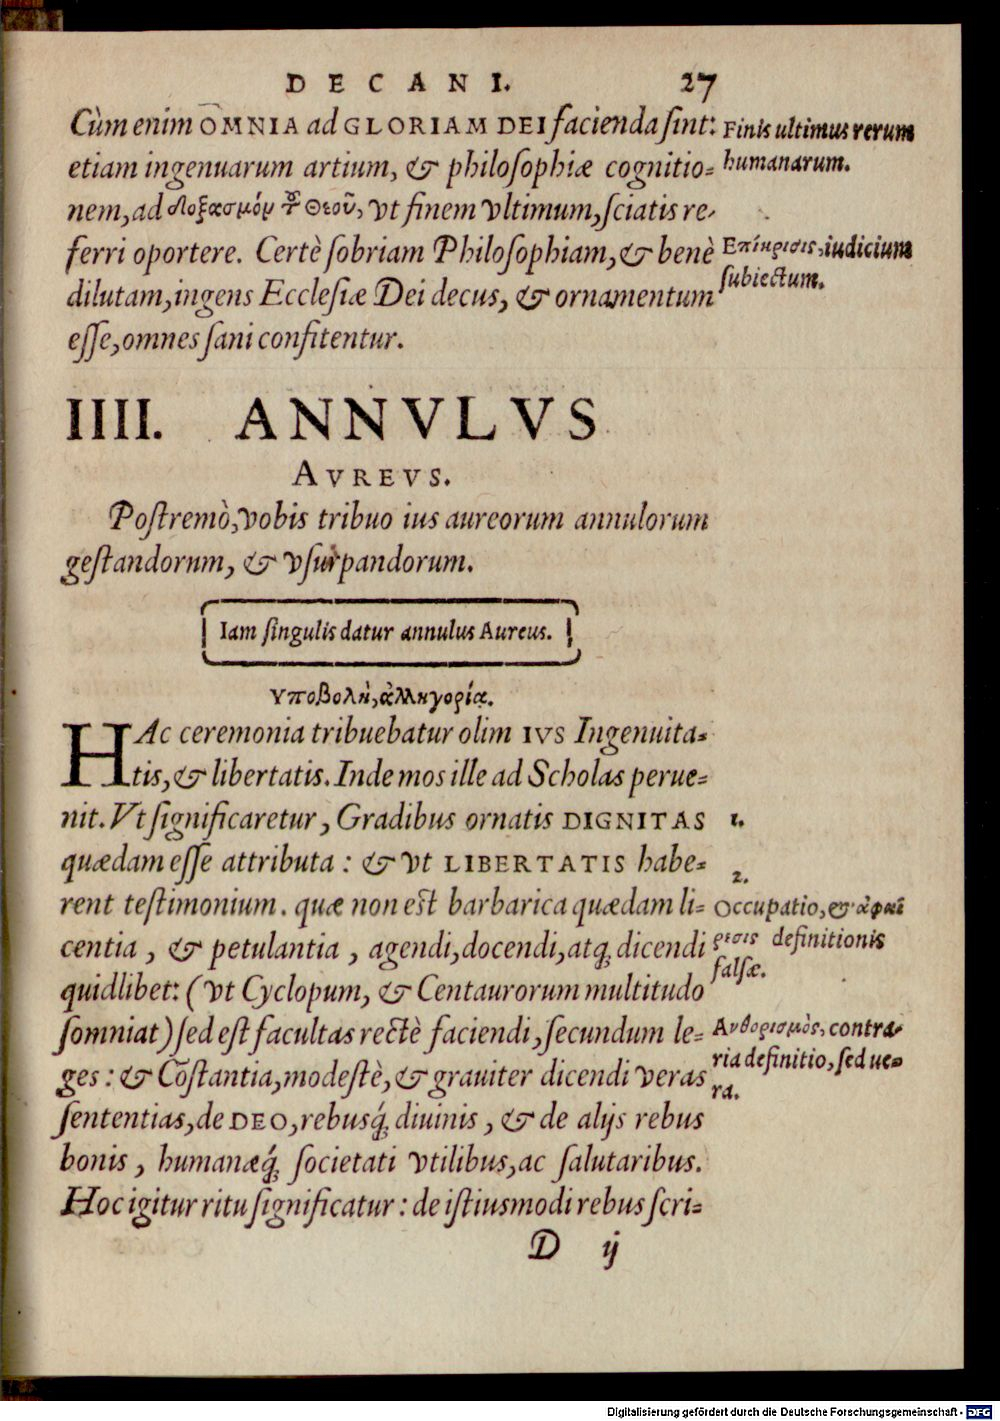 DECANI. 27
Cùm enim OMNIA ad GLORIAM DEI facienda sint:
etiam ingenuarum artium, & philosophiæ cognitio-
nem, ad δοξασμόν τ͂ Θεοῦ, vt finem vltimum, sciatis re-
ferri oportere. Certè sobriam Philosophiam, & benè
dilutam, ingens Ecclesiæ Dei decus, & ornamentum
esse, omnes sani confitentur.
Finis ultimus rerum
humanarum.
Επίκρισις, iudicium
subiectum.
IIII. ANNVLVS
AVREVS.
Postremò, vobis tribuo ius aureorum annulorum
gestandorum, & vsurpandorum.
Iam singulis datur annulus Aureus.
Υποβολὴ, ἀλληγορία.
HAc ceremonia tribuebatur olim IVS Ingenuita-
tis, & libertatis. Inde mos ille ad Scholas perue-
nit. Vt significaretur, Gradibus ornatis DIGNITAS
quædam esse attributa: & vt LIBERTATIS habe-
rent testimonium. quæ non est barbarica quædam li-
centia, & petulantia, agendi, docendi, atq; dicendi
quidlibet: (vt Cyclopum, & Centaurorum multitudo
somniat) sed est facultas rectè faciendi, secundum le-
ges: & Cõstantia, modestè, & grauiter dicendi veras
sententias, de DEO, rebusq́; diuinis, & de alijs rebus
bonis, humanæq́; societati vtilibus, ac salutaribus.
Hoc igitur ritu significatur: de istiusmodi rebus scri-
1.
2.
Occupatio, & ἀφαί
ρεσις definitionis
falsæ.
Ανθορισμὸς, contra-
ria definitio, sed ue-
ra.
D ij
Digitalisierung gefördert durch die Deutsche Forschungsgemeinschaft - DFG